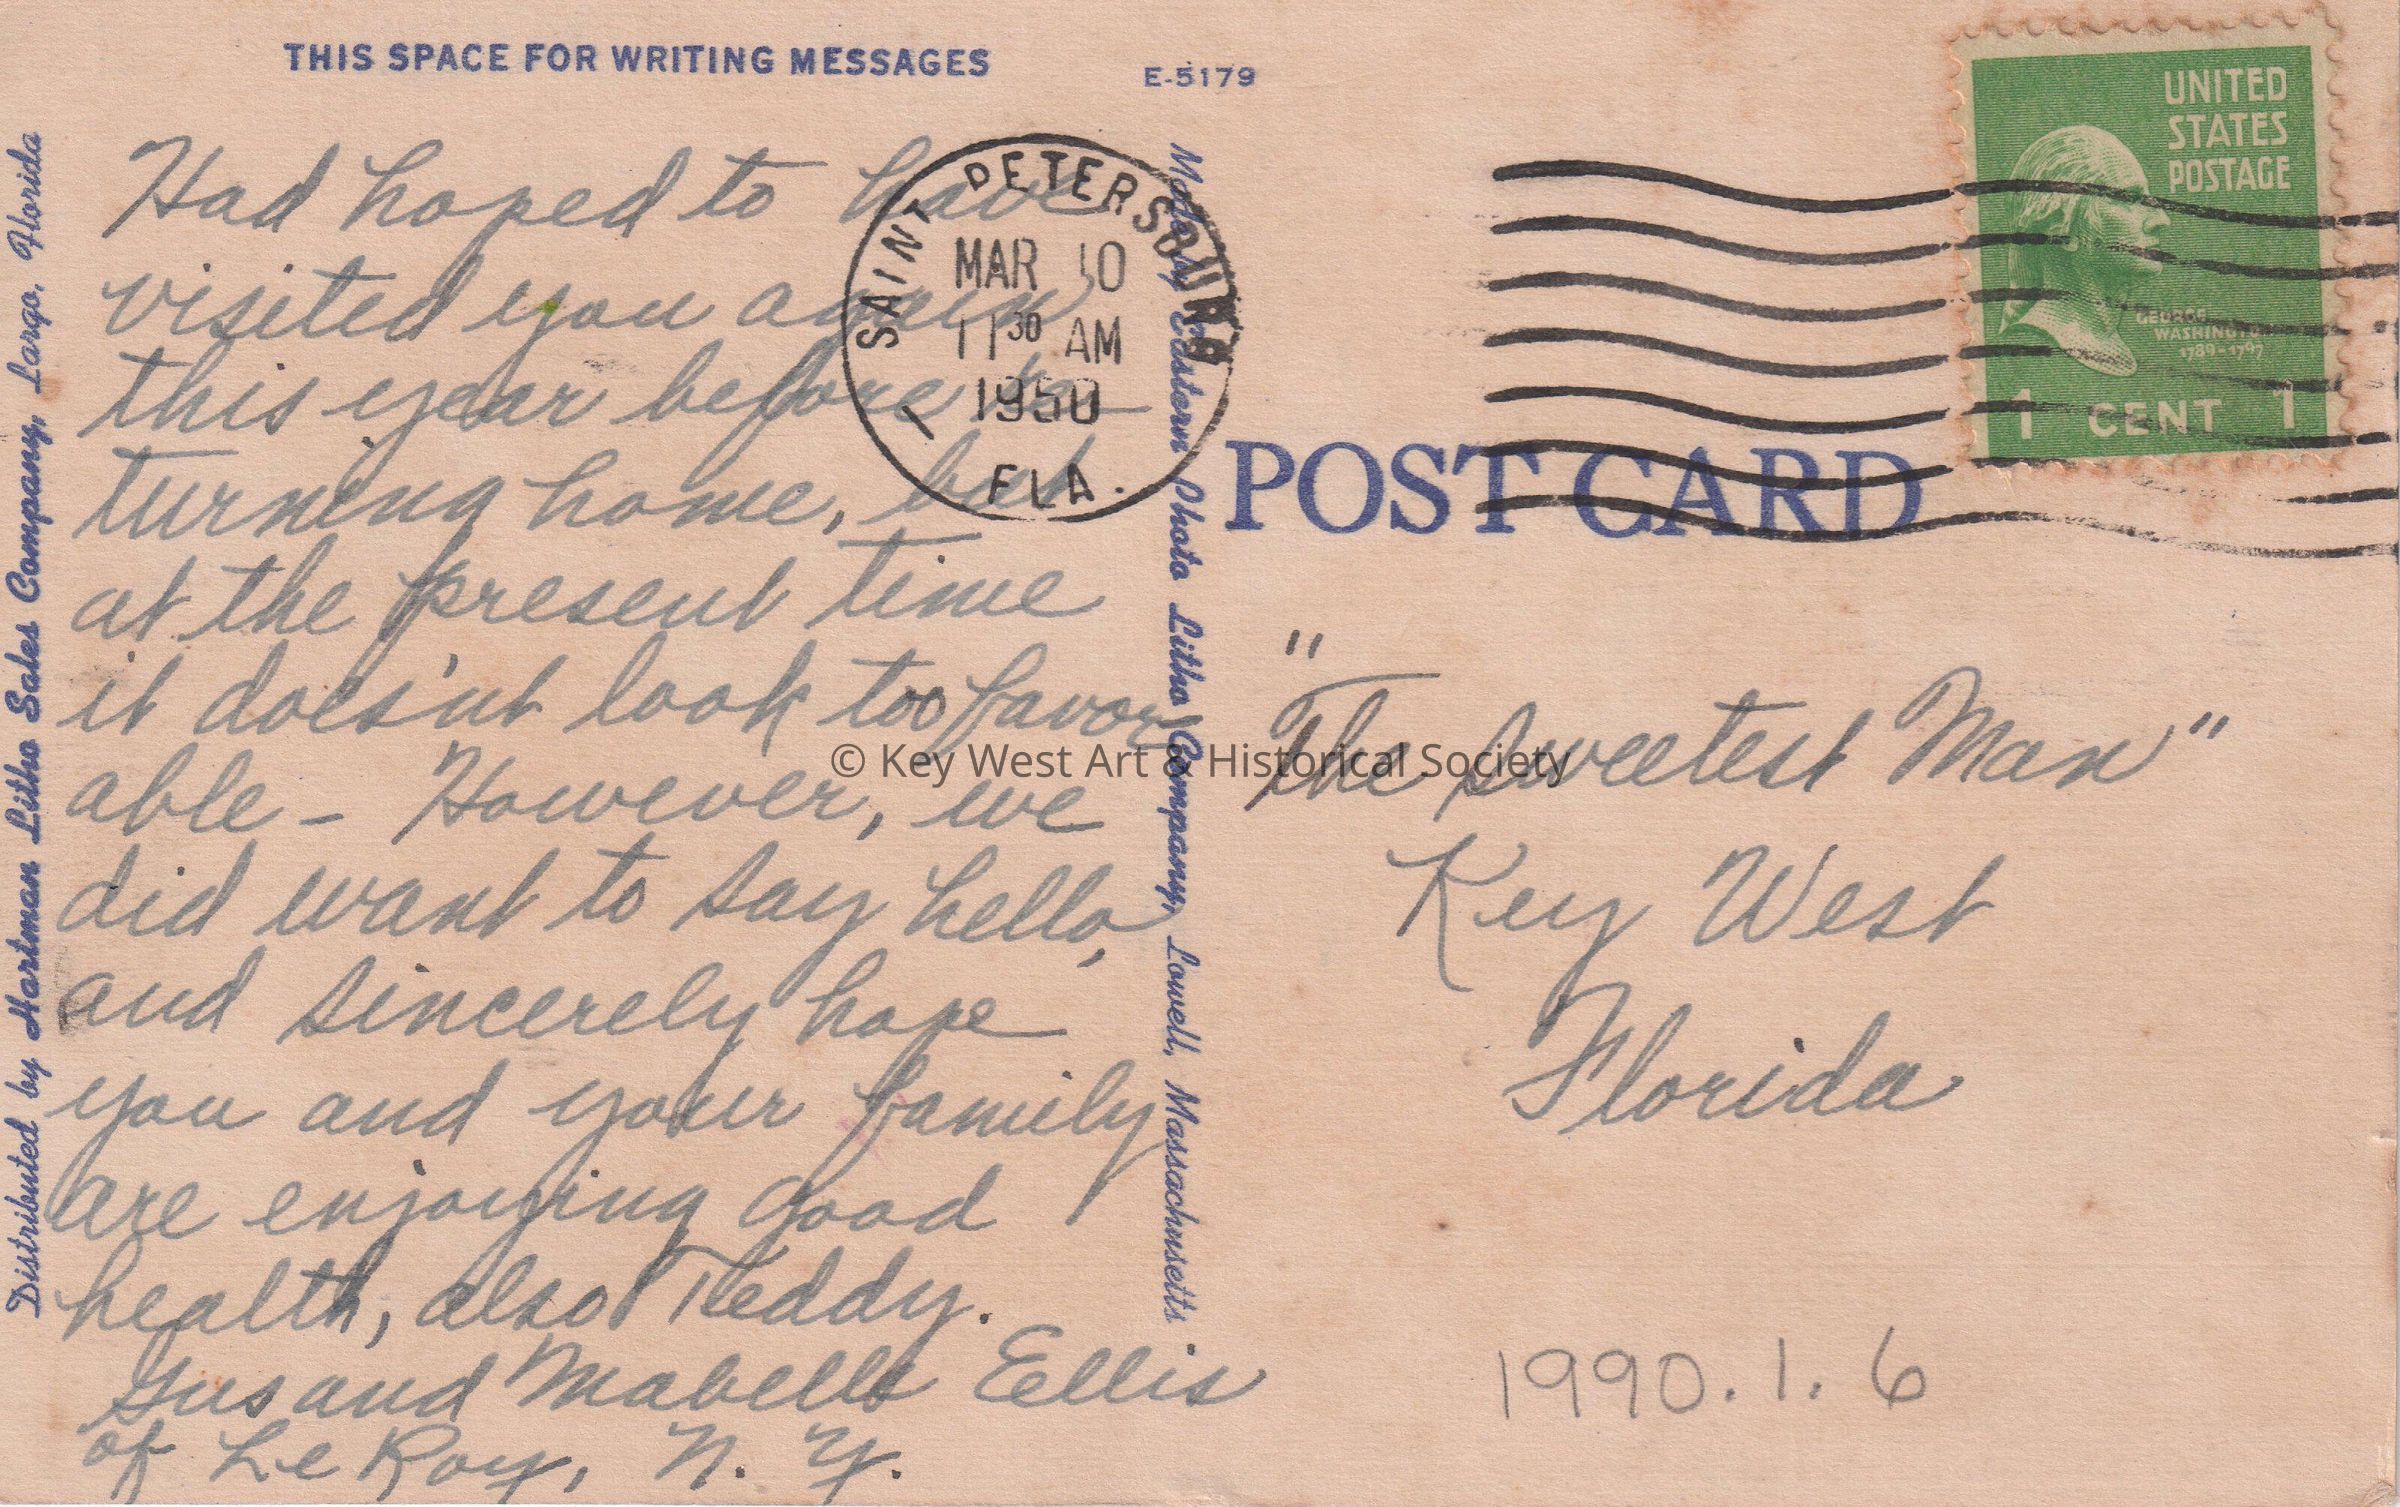 THIS SPACE FOR WRITING MESSAGES
E-5179
Had hoped to have
visited you again
this year before re-
turning home, but
at the present time
it does'nt look too favor
able - However, we
did want to say hello,
and sincerely hope
you and your family
are enjoying good
health, also Teddy.
Gus and Mabelle Ellis
of Le Roy, N. Y.
Distributed by Hartman Litho Sales Company, Largo, Florida
Made by Eastern Photo Litho Company, Lowell, Massachusetts
SAINT PETERSBURG
MAR 10
11 30 AM
1950
1
FLA.
UNITED
STATES
POSTAGE
GEORGE
WASHINGTON
1789-1797
1 CENT 1
POST CARD
"The Sweetest Man"
Key West
Florida
1990.1.6
© Key West Art & Historical Society